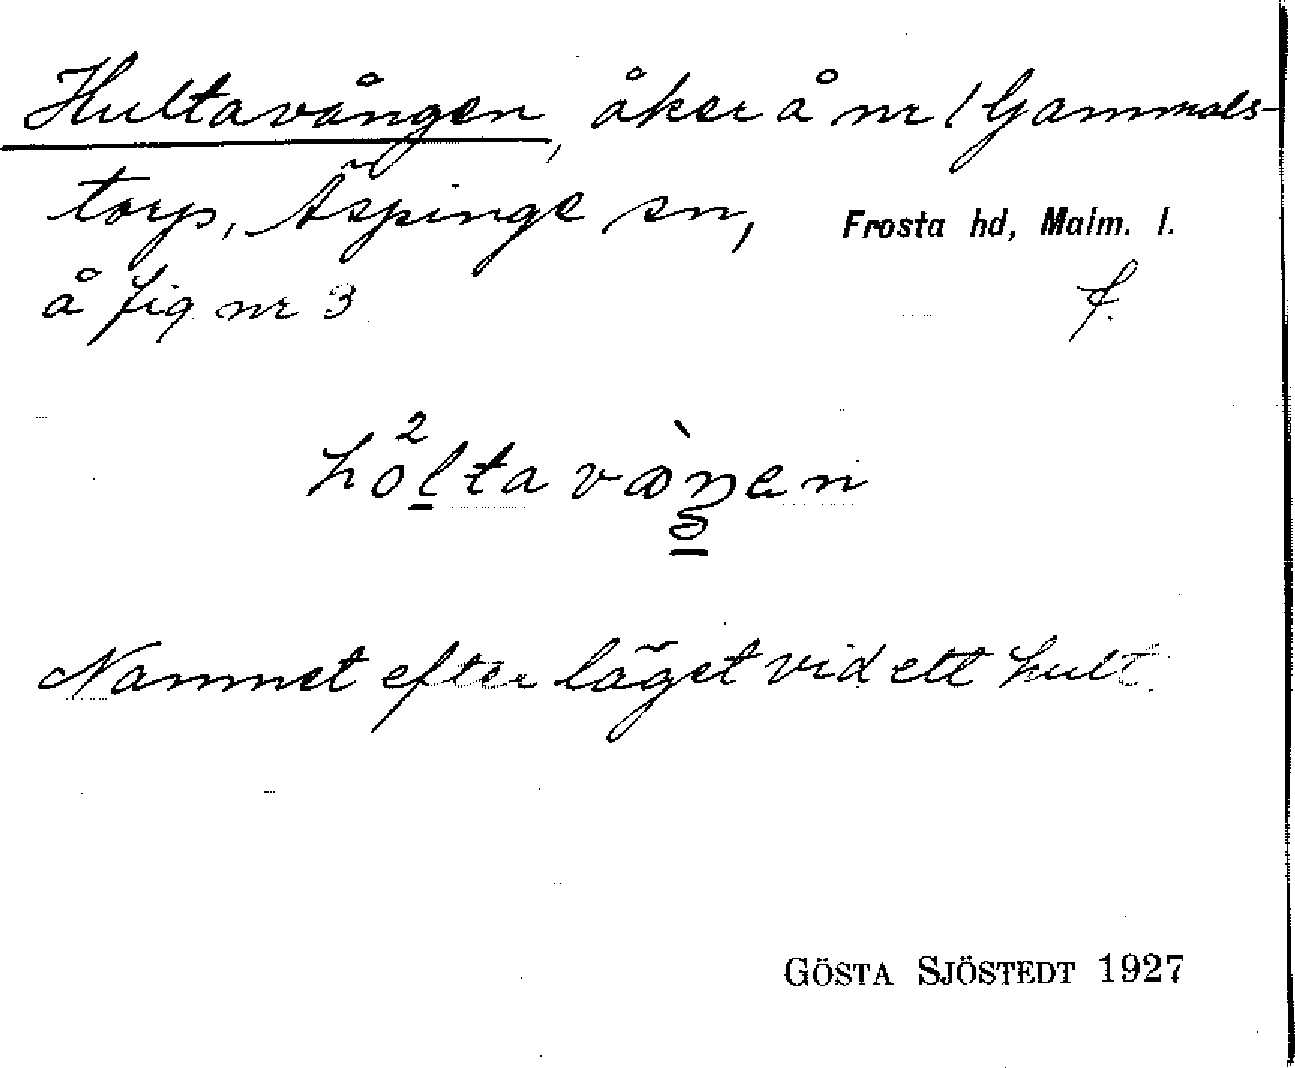 Hultavången, åker å nr 1 Gammals-
torp, Äspinge sn, Frosta hd, Malm. l.
å fig nr 3 f.
ho²ltavàŋen
Namnet efter läget vid ett hult.
GÖSTA SJÖSTEDT 1927